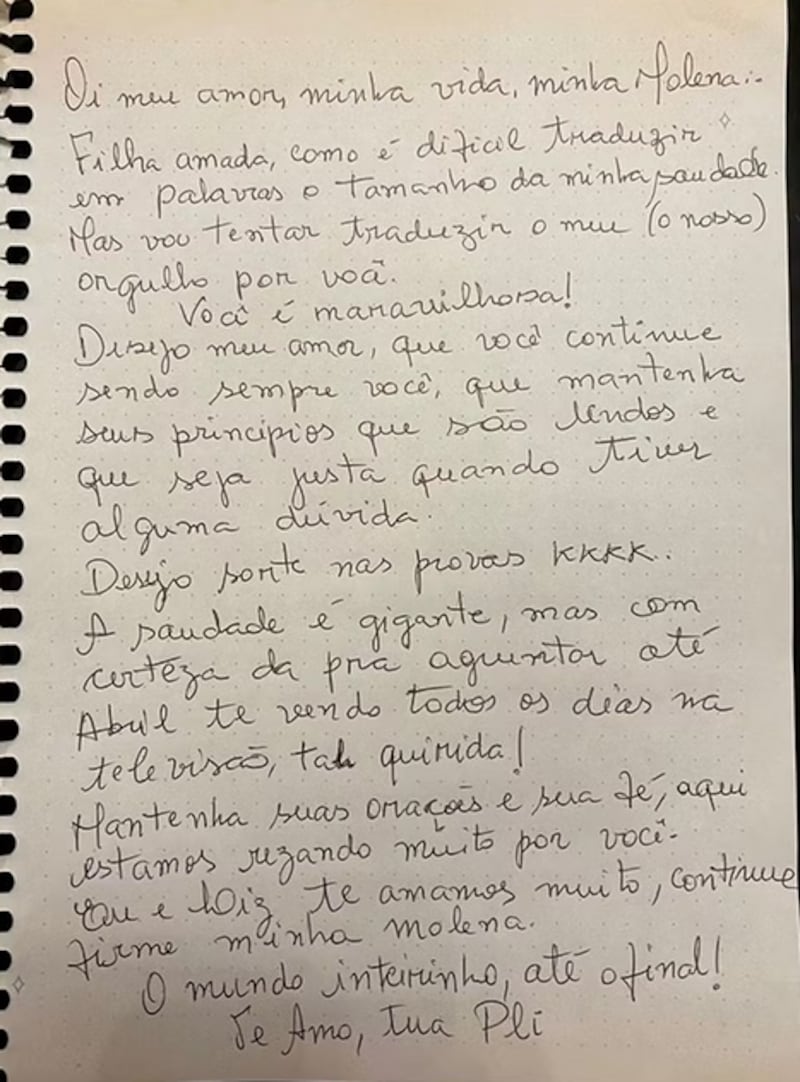 Oi meu amor, minha vida, minha Molena:-
Filha amada, como é dificil traduzir
em palavras o tamanho da minha saudade.
Mas vou tentar traduzir o meu (o nosso)
orgulho por você.
Você é maravilhosa!
Desejo meu amor, que você continue
sendo sempre você, que mantenha
seus princípios que são lindos e
que seja justa quando tiver
alguma dúvida.
Desejo sorte nas provas kkkk..
A saudade é gigante, mas com
certeza da pra aguentar até
Abril te vendo todos os dias na
televisão, tah querida!
Mantenha suas orações e sua fé, aqui
estamos rezando muito por você.
Eu e Wiz te amamos muito, continue
firme minha molena.
O mundo inteirinho, até o final!
Te Amo, tua Pli